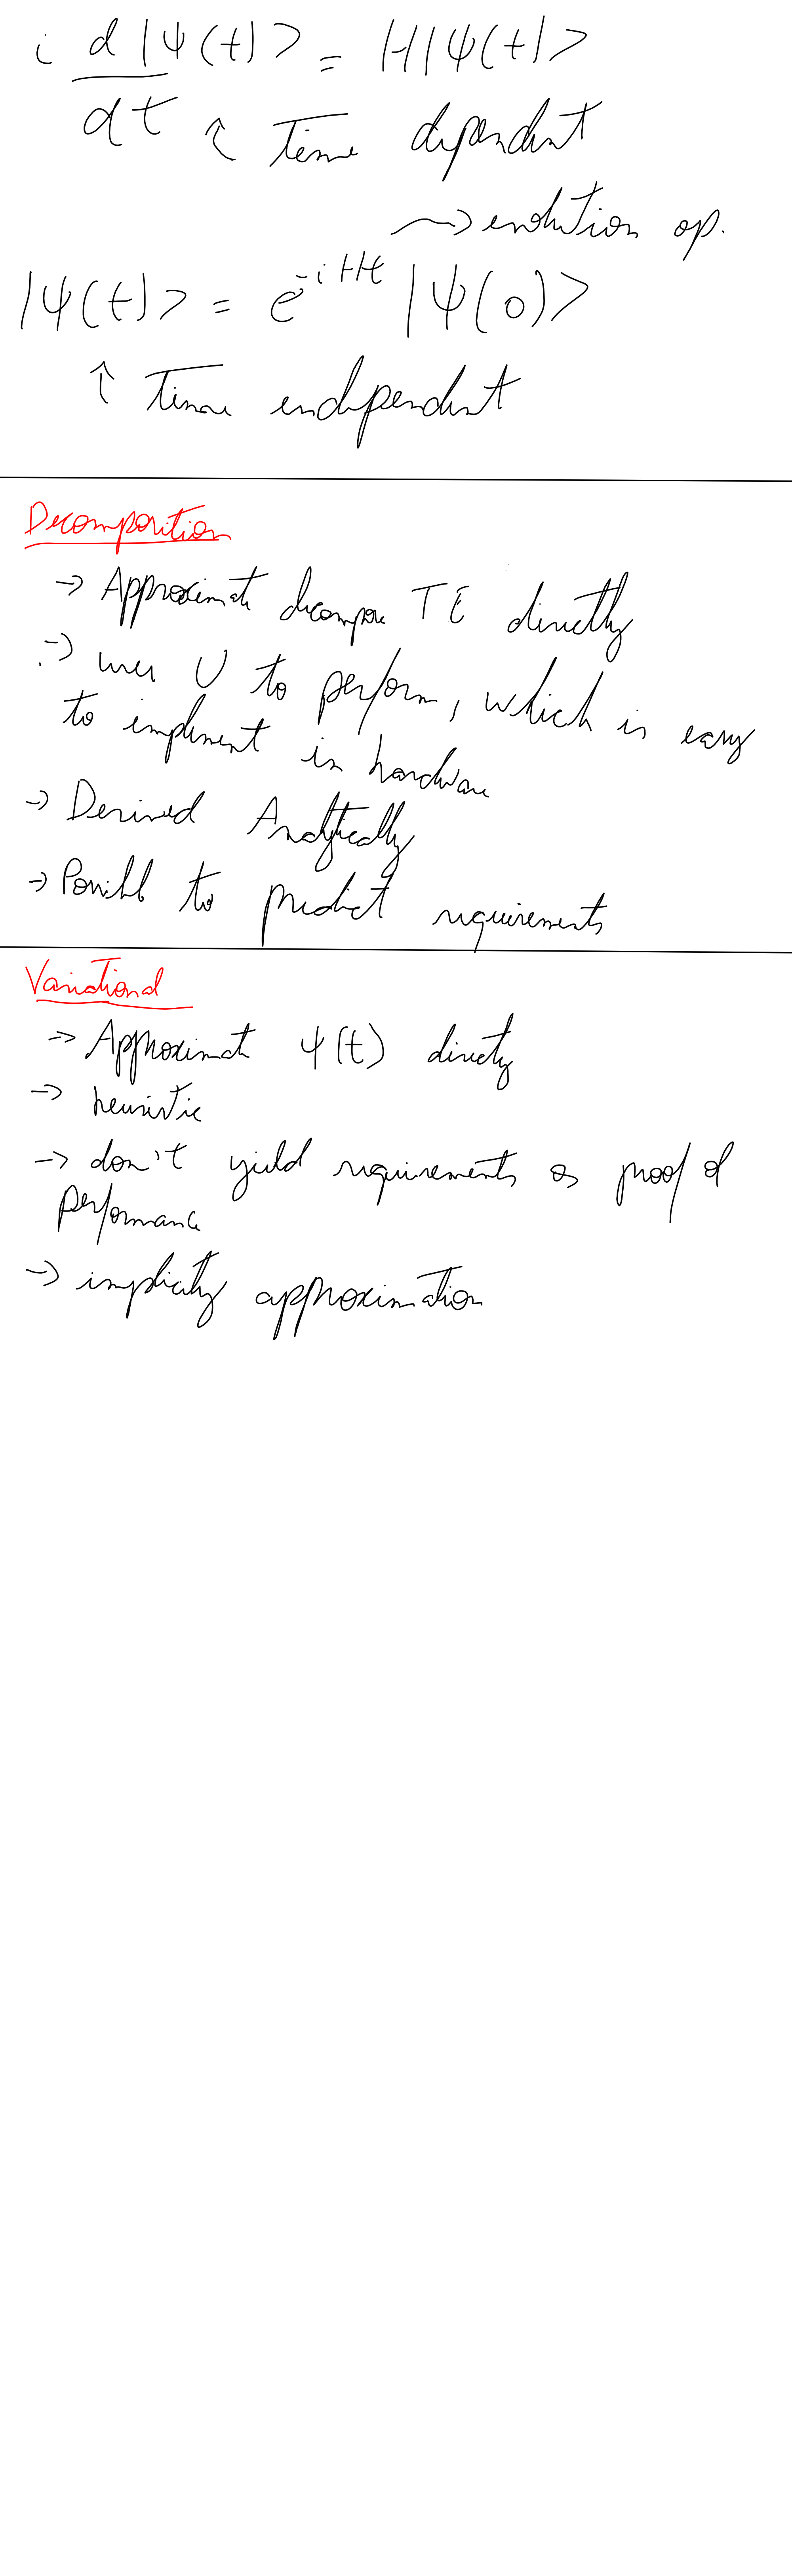 i d|ψ(t)> = H|ψ(t)>
dt ↑ Time dependent
→ evolution op.
|ψ(t)> = e^-iHt |ψ(0)>
↑ Time independent
Decomposition
→ Approximate decompose TE directly
→ uses U to perform, which is easy
to implement in hardware
→ Derived Analytically
→ Possible to predict requirements
Variational
→ Approximate ψ(t) directly
→ heuristic
→ don't yield requirements or proof of
performance
→ implicitly approximation